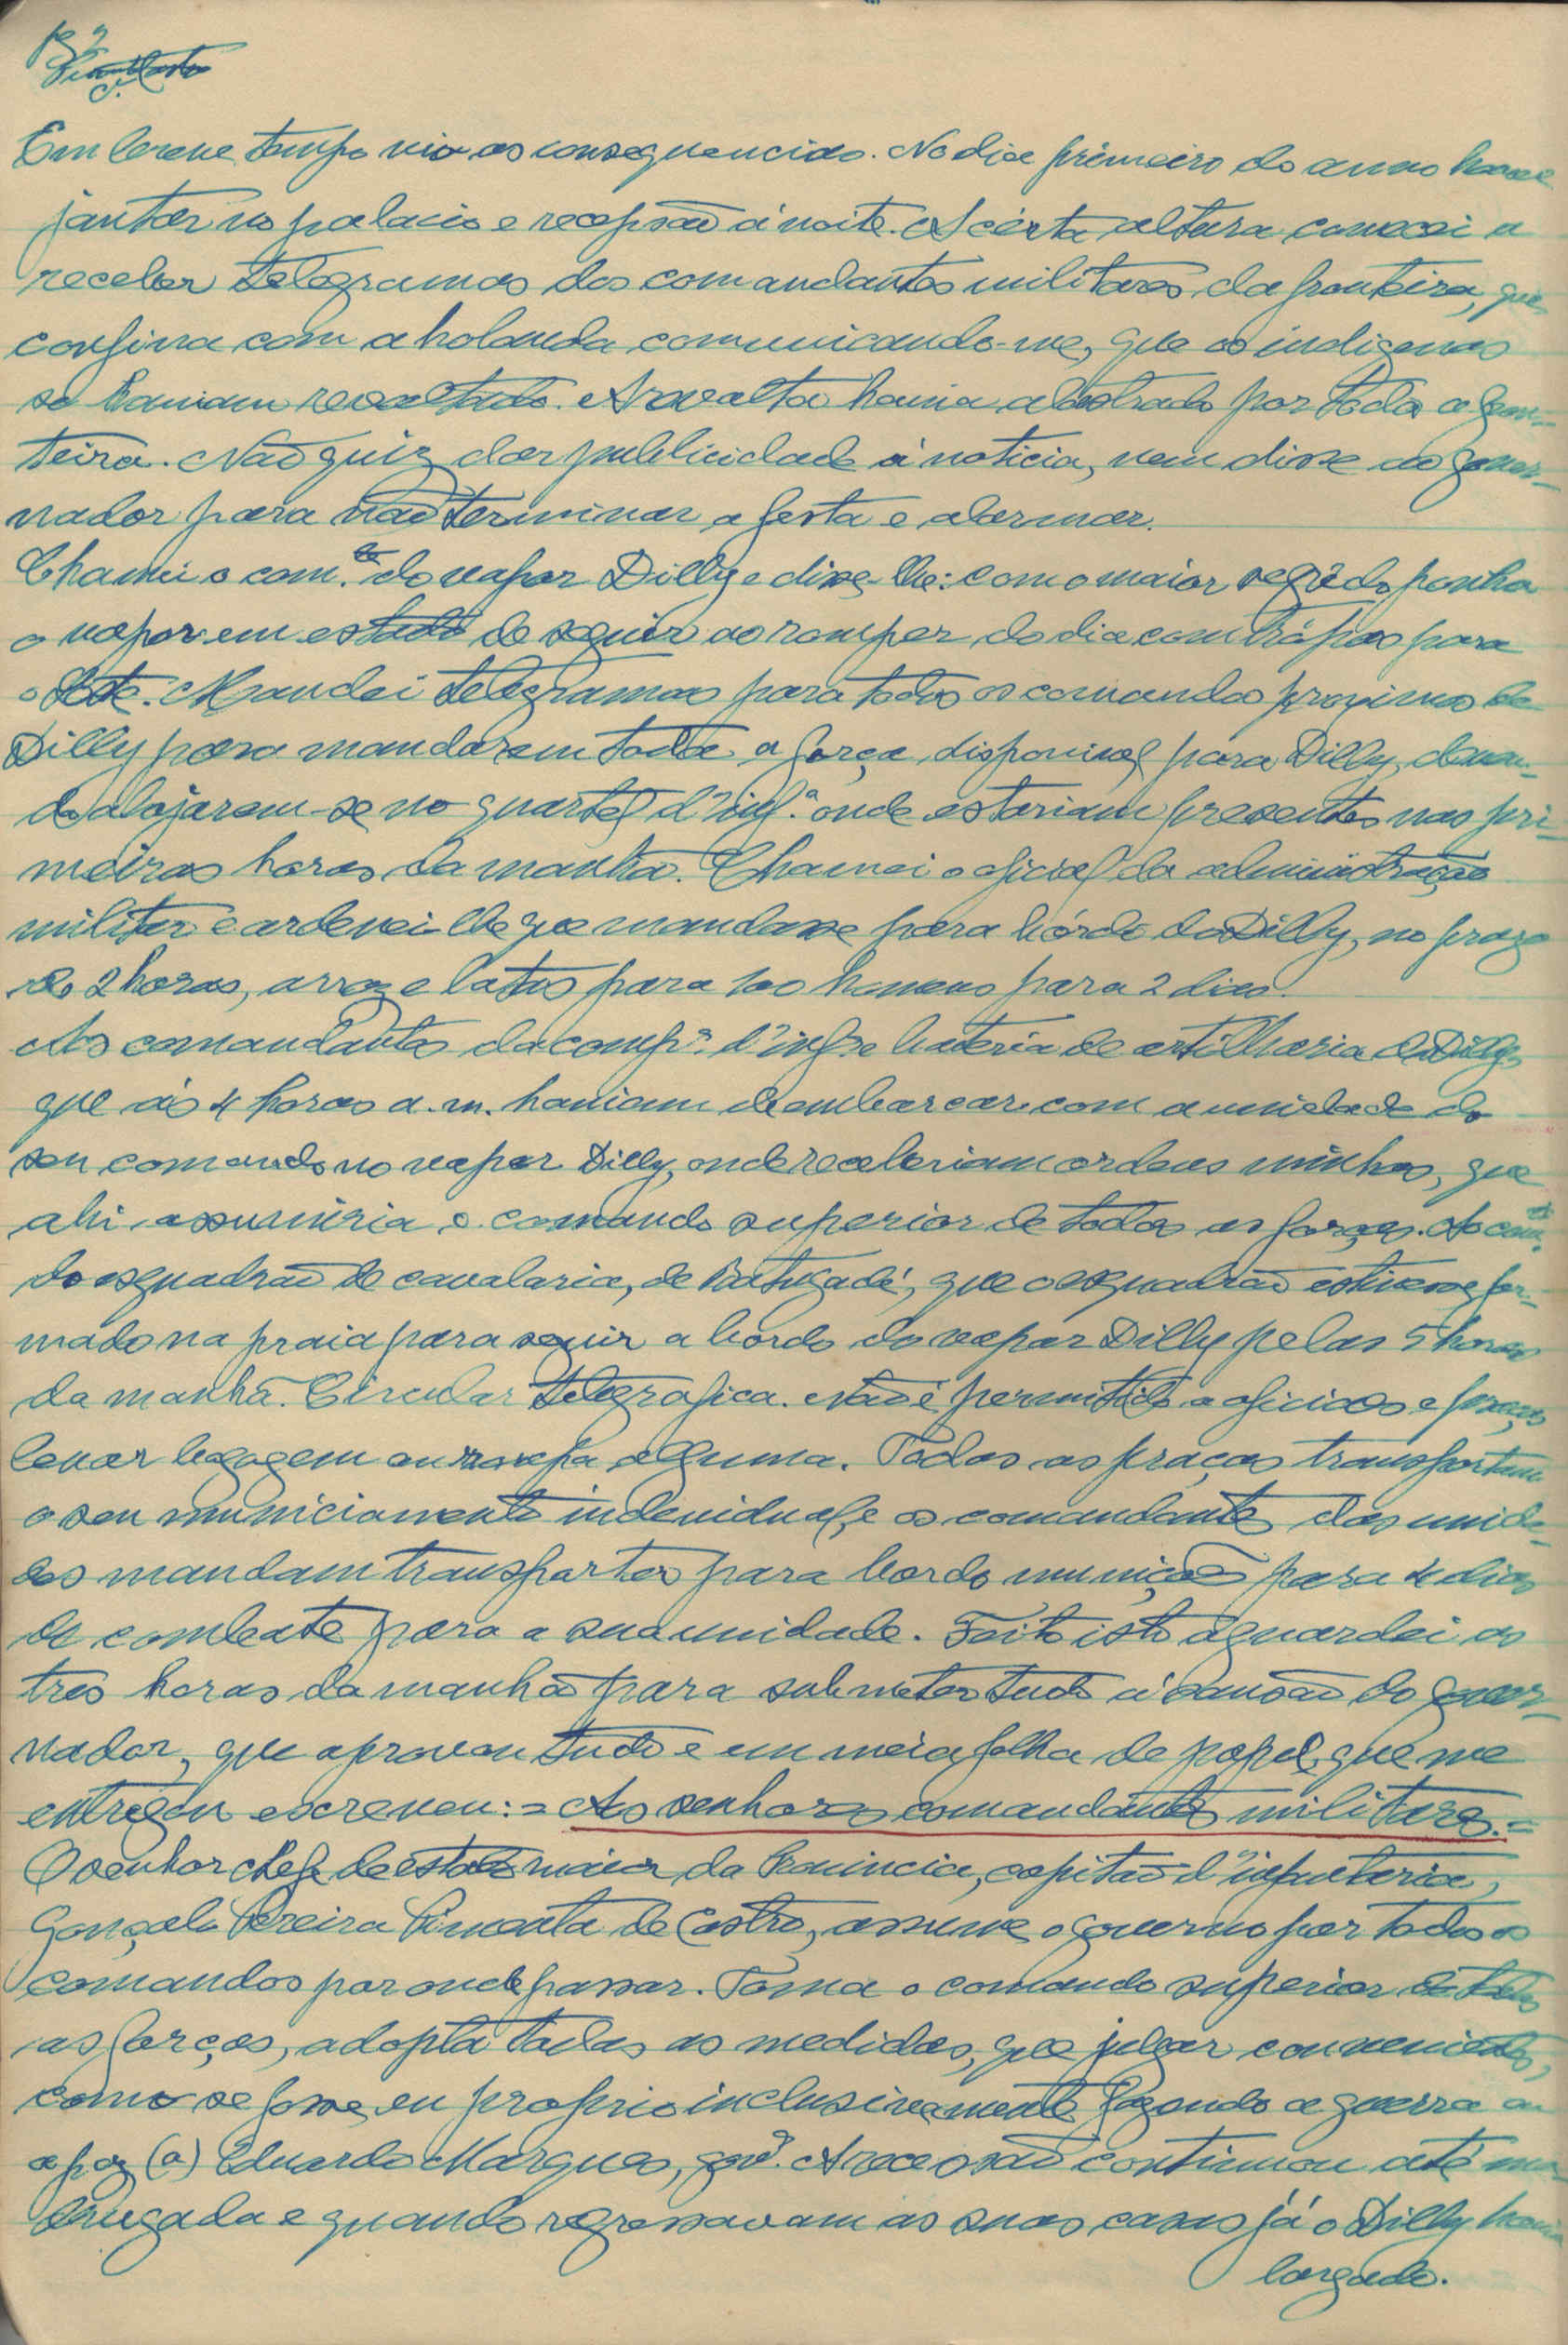 Em breve tempo viu as consequencias. No dia primeiro do anno houve
jantar no palacio e recepsão á noite. A cérta altura comecei a
receber telegramas dos comandantes militares da fronteira, que
confina com a holanda comunicando-me, que os indigenas
se haviam revoltado. A revolta havia alastrado por toda a fron-
teira. Não quiz dar publicidade á noticia, nem disse ao gover-
nador para não terminar a festa e alarmar.
Chamei o com.te do vapor Dilly e disse-lhe: com o maior segrêdo ponha
o vapor em estado de seguir ao romper do dia com trópas para
o Oeste. Mandei telegramas para todos os comandos proximos de
Dilly para mandarem toda a força disponivel para Dilly, deven-
do alojarem-se no quartel d'inf.a onde estariam presentes nas pri-
meiras horas da manhã. Chamei o oficial da administração
militar e ordenei-lhe que mandasse para bórdo do Dilly, no prazo
de 2 horas, arroz e latas para 100 homens para 2 dias.
Aos comandantes da comp.a d'inf.a e bateria de artilharia de Dilly
que ás 4 horas a.m. haviam de embarcar com a unidade do
seu comando no vapor Dilly, onde receberiam ordens minhas, que
ahi assumiria o comando superior de todas as forças. Ao com.te
do esquadrão de cavalaria, de Batugadé, que o esquadrão estivesse for-
mado na praia para seguir a bordo do vapor Dilly pelas 5 horas
da manhã. Circular telegrafica. Não é permitido a oficiaes e praças
levar bagagem ou roupa alguma. Todas as praças transportam
o seu municiamento indevidual, e os comandantes das unida-
des mandam transportar para bordo munições para 4 dias
de combate para a sua unidade. Feito isto aguardei as
tres horas da manhã para submeter tudo á sansão do gover-
nador, que aprovou tudo e em meia folha de papel, que me
entregou escreveu: = Aos senhores comandantes militares. =
O senhor chefe de estado maior da Provincia, capitão d'infantaria,
Gonçalo Pereira Pimenta de Castro, assume o governo por todos os
comandos por onde passar. Toma o comando superior de todas
as forças, adopta todas as medidas, que julgar convenientes,
como se fosse eu proprio inclusivamente fazendo a guerra ou
a paz (a) Eduardo Marques, gov.or A recepsão continuou até ma-
drugada e quando regressavam ás suas casas já o Dilly havia
largado.